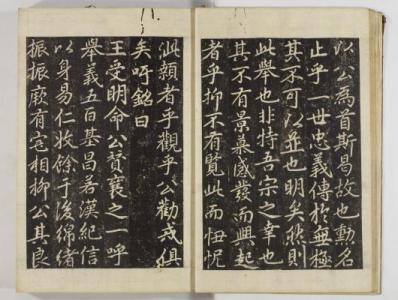 以公為首斯曷故也勳名
止乎一世忠義傳於無極
其不可以並也明矣然則
此舉也非特吾宗之幸也
其不有景慕感發而興起
者乎抑不有覽此而忸怩
泚顙者乎觀乎公勸戒俱
矣吁銘曰
王受明命公贊襄之一呼
舉義五百基昌若漢紀信
以身易仁收餘于後綿緒
振振厥有宅相柳公其良